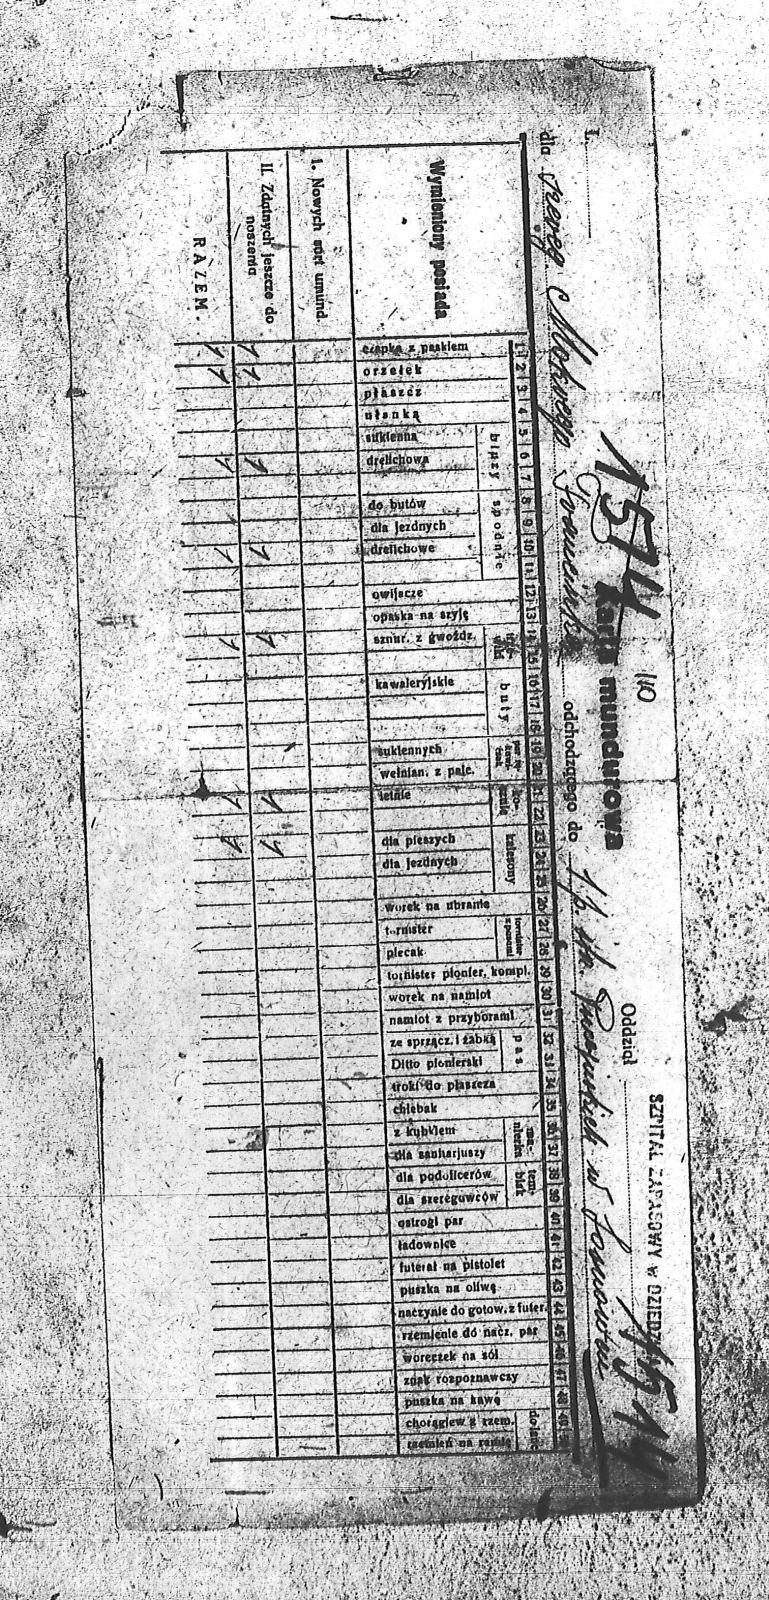 1574
110
1514
Karta mundurowa
Oddział
SZPITAL ZAPASOWY w DZIEDZ
L.
dla szereg. Mokrego Franciszka odchodzącego do 1 p. w Sosnowcu
Wymieniony posiada
1. Nowych sort umund.
II. Zdatnych jeszcze do noszenia
RAZEM.
1 czapka z paskiem 1 1
2 orzełek 1 1
3 płaszcz
4 ułanka
bluzy
5 sukienna
6 drelichowa 1 1
7
spodnie
8 do butów
9 dla jezdnych
10 drelichowe 1 1
11
12 owijacze
13 opaska na szyję
14 sznur. z gwoźdz. 1 1
15
buty
16 kawaleryjskie
17
18
19 sukiennych
20 wełnian. z palc.
21 letnie 1 1
22
kalesony
23 dla pieszych 1 1
24 dla jezdnych
25
26 worek na ubranie
27 tornister
28 plecak
29 tornister pionier. kompl.
30 worek na namiot
31 namiot z przyborami
pas
32 ze sprzącz. i żabką
33 Ditto pionierski
34 troki do płaszcza
35 chlebak
36 z kubkiem
37 dla sanitarjuszy
38 dla podoficerów
39 dla szeregowców
40 ostrogi par
41 ładownice
42 futerał na pistolet
43 puszka na oliwę
44 naczynie do gotow. z futer.
45 rzemienie do nacz. par
46 woreczek na sól
47 znak rozpoznawczy
48 puszka na kawę
49 chorągiew z rzem.
rzemień na ramię